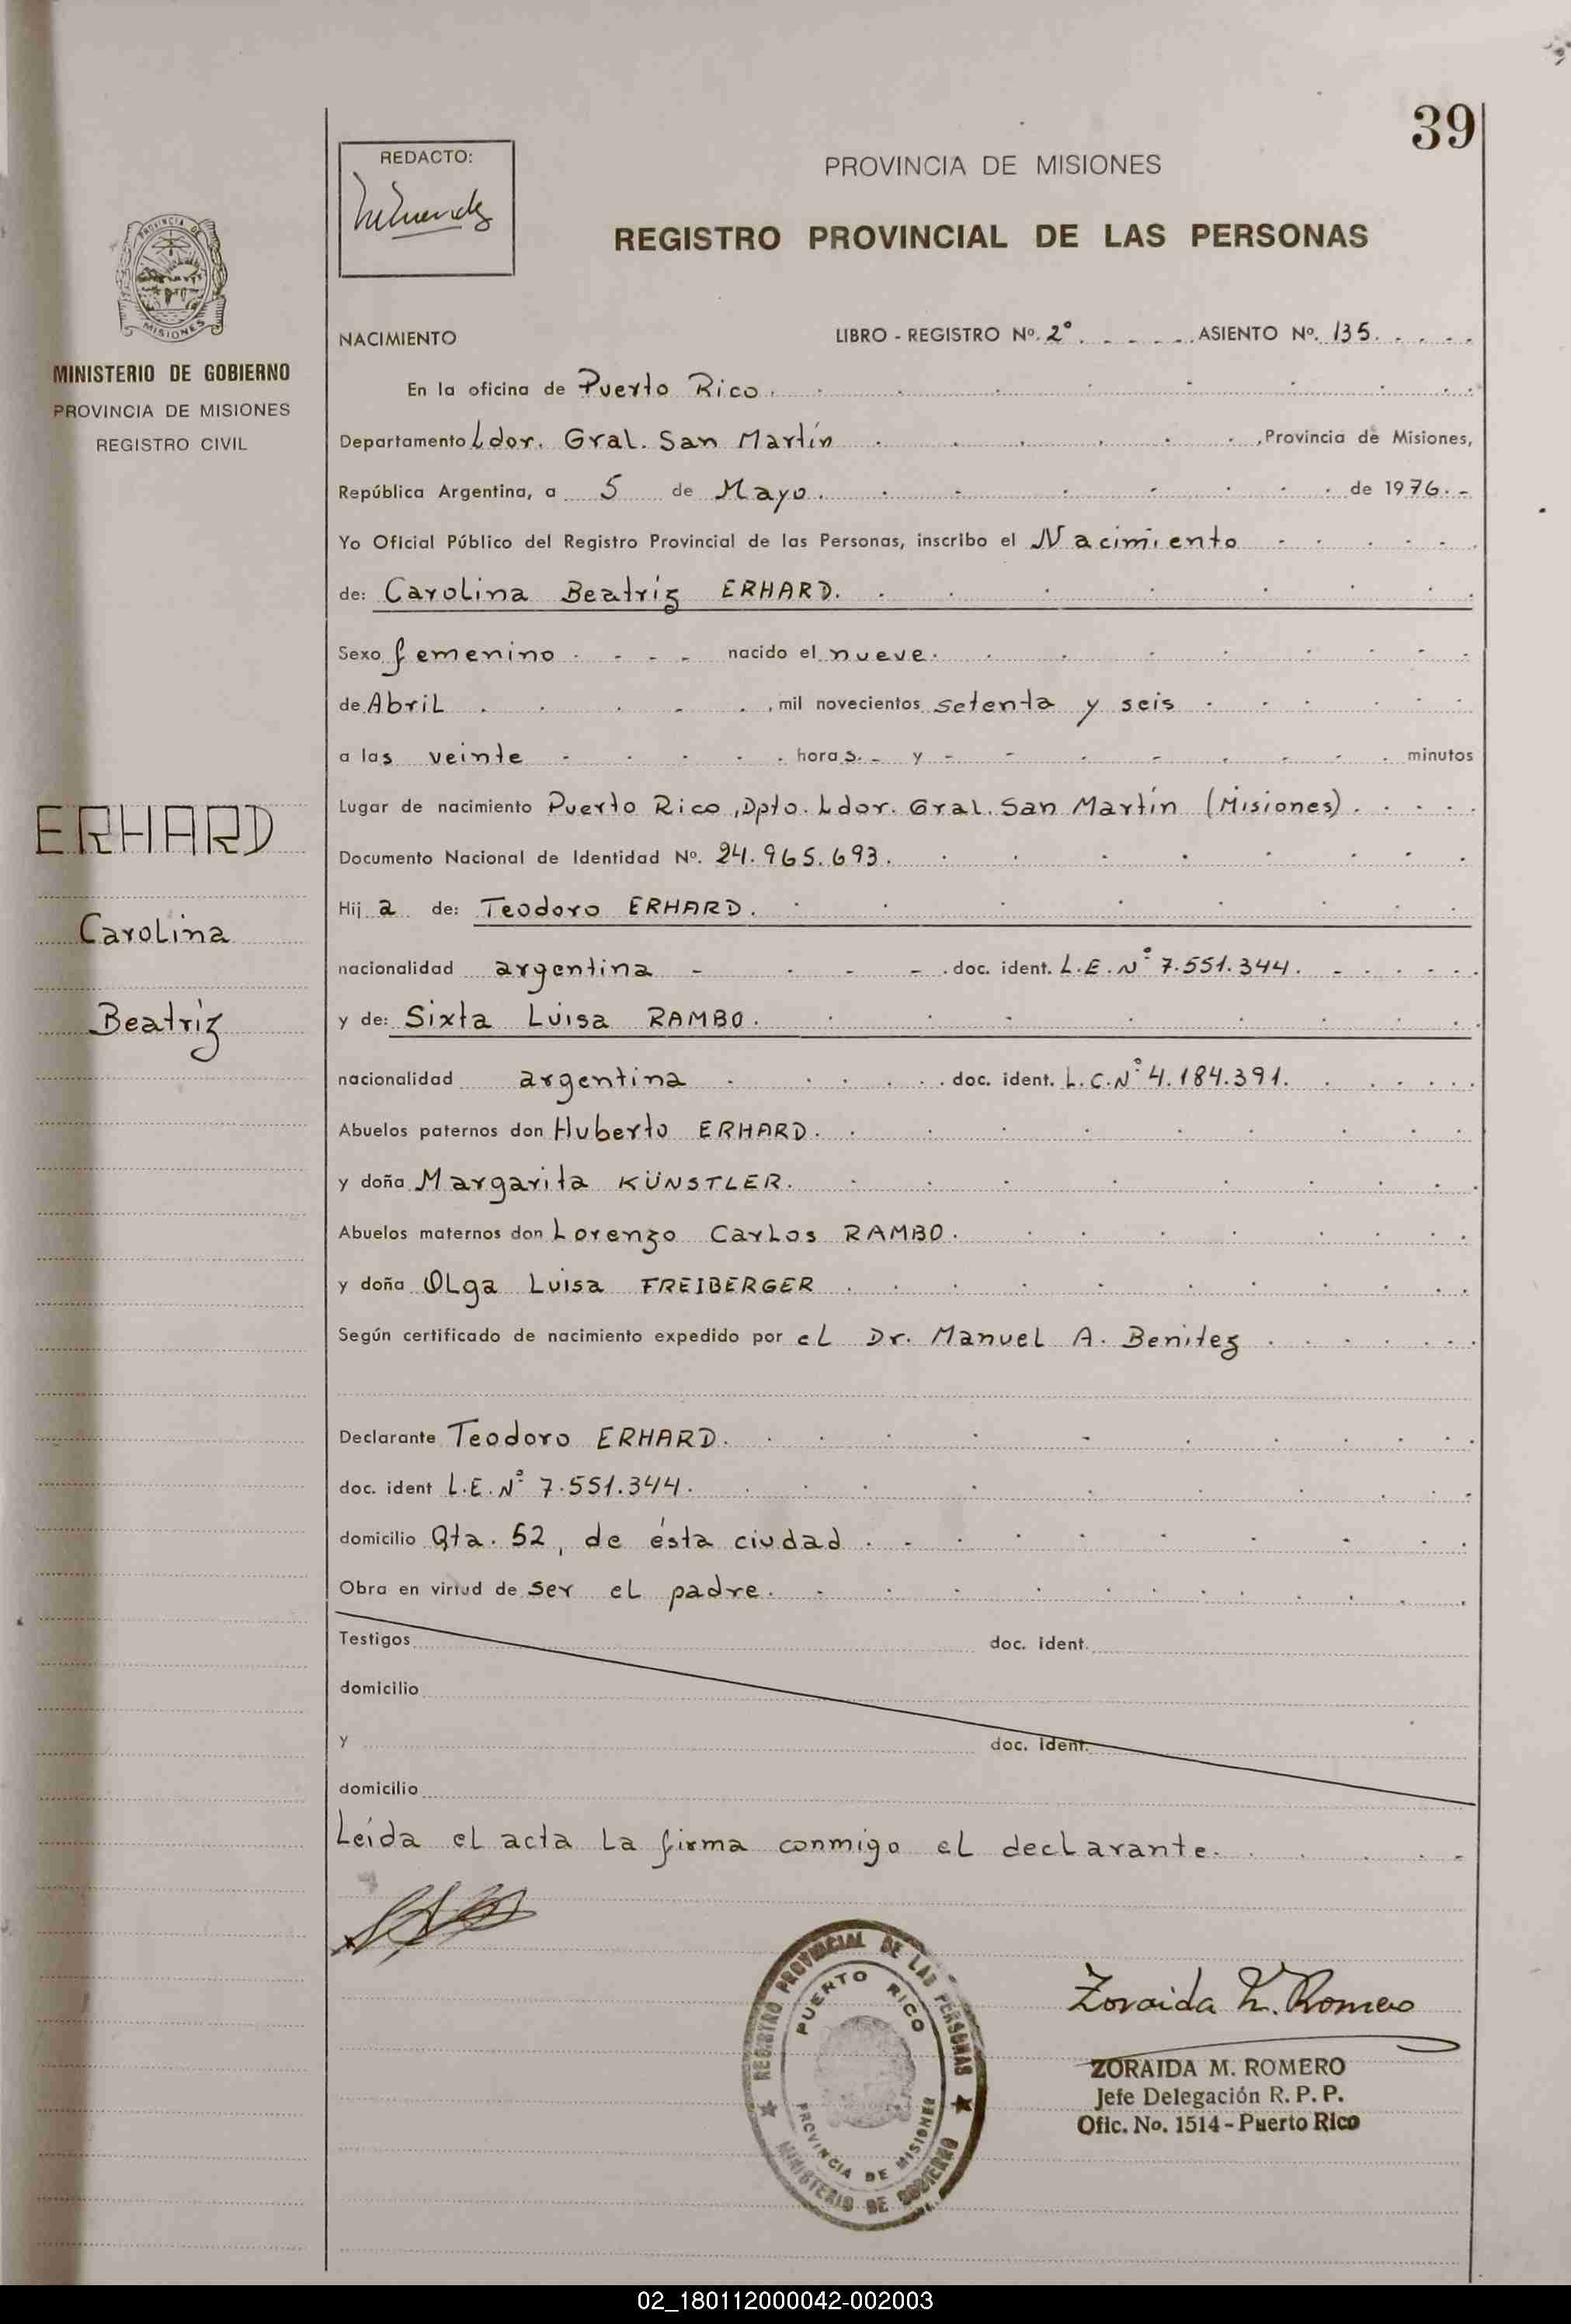 39
REDACTO:
PROVINCIA DE MISIONES
REGISTRO PROVINCIAL DE LAS PERSONAS
PROVINCIA DE
MISIONES
MINISTERIO DE GOBIERNO
PROVINCIA DE MISIONES
REGISTRO CIVIL
ERHARD
Carolina
Beatriz
NACIMIENTO LIBRO - REGISTRO Nº. 2º ASIENTO Nº. 135.
En la oficina de Puerto Rico.
Departamento Ldor. Gral. San Martín , Provincia de Misiones,
República Argentina, a 5 de Mayo. de 1976.-
Yo Oficial Público del Registro Provincial de las Personas, inscribo el Nacimiento
de: Carolina Beatriz ERHARD.
Sexo femenino nacido el nueve.
de Abril , mil novecientos setenta y seis
a las veinte horas.- y - minutos
Lugar de nacimiento Puerto Rico, Dpto. Ldor. Gral. San Martín (Misiones).
Documento Nacional de Identidad Nº. 24.965.693.
Hija de: Teodoro ERHARD.
nacionalidad argentina - doc. ident. L.E.Nº 7.551.344.
y de: Sixta Luisa RAMBO.
nacionalidad argentina doc. ident. L.C.Nº 4.184.391.
Abuelos paternos don Huberto ERHARD.
y doña Margarita KÜNSTLER.
Abuelos maternos don Lorenzo Carlos RAMBO.
y doña Olga Luisa FREIBERGER
Según certificado de nacimiento expedido por el Dr. Manuel A. Benitez
Declarante Teodoro ERHARD.
doc. ident L.E.Nº 7.551.344.
domicilio Qta. 52, de ésta ciudad
Obra en virtud de ser el padre.
Testigos doc. ident.
domicilio
y doc. ident.
domicilio
Leída el acta la firma conmigo el declarante.
REGISTRO PROVINCIAL DE LAS PERSONAS
PUERTO RICO
PROVINCIA DE MISIONES
MINISTERIO DE GOBIERNO
Zoraida M. Romero
ZORAIDA M. ROMERO
Jefe Delegación R. P. P.
Ofic. No. 1514 - Puerto Rico
02_180112000042-002003